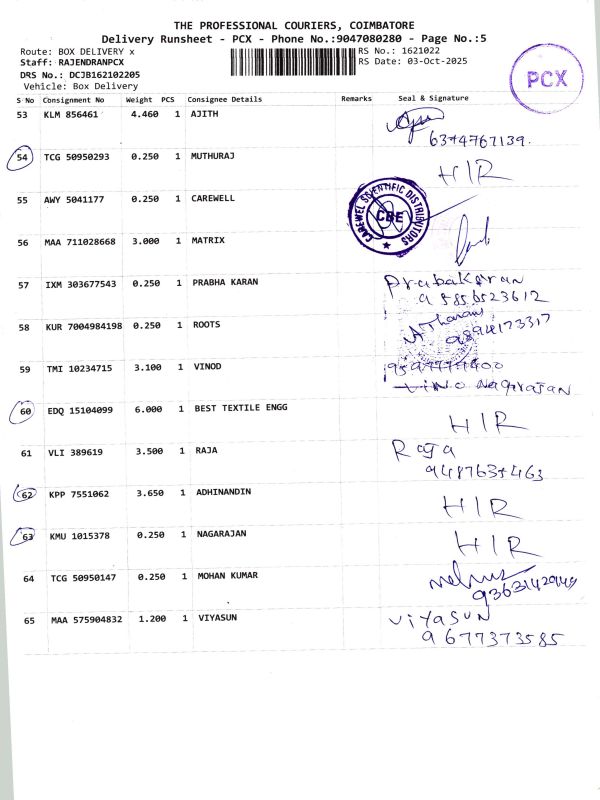 THE PROFESSIONAL COURIERS, COIMBATORE
Delivery Runsheet - PCX - Phone No.:9047080280 - Page No.:5
Route: BOX DELIVERY x RS No.: 1621022
Staff: RAJENDRANPCX RS Date: 03-Oct-2025
DRS No.: DCJB162102205
Vehicle: Box Delivery
PCX
S No Consignment No Weight PCS Consignee Details Remarks Seal & Signature
53 KLM 856461 4.460 1 AJITH
6374767139.
54 TCG 50950293 0.250 1 MUTHURAJ H/R
55 AWY 5041177 0.250 1 CAREWELL
CAREWEL SCIENTIFIC DISTRIBUTORS CBE
56 MAA 711028668 3.000 1 MATRIX
57 IXM 303677543 0.250 1 PRABHA KARAN Prabakaran
58 KUR 7004984198 0.250 1 ROOTS
9894173317
59 TMI 10234715 3.100 1 VINOD
VINO Nagarajan
60 EDQ 15104099 6.000 1 BEST TEXTILE ENGG H/R
61 VLI 389619 3.500 1 RAJA Raja
9487637463
62 KPP 7551062 3.650 1 ADHINANDIN H/R
63 KMU 1015378 0.250 1 NAGARAJAN H/R
64 TCG 50950147 0.250 1 MOHAN KUMAR
65 MAA 575904832 1.200 1 VIYASUN viyasun
9677373585